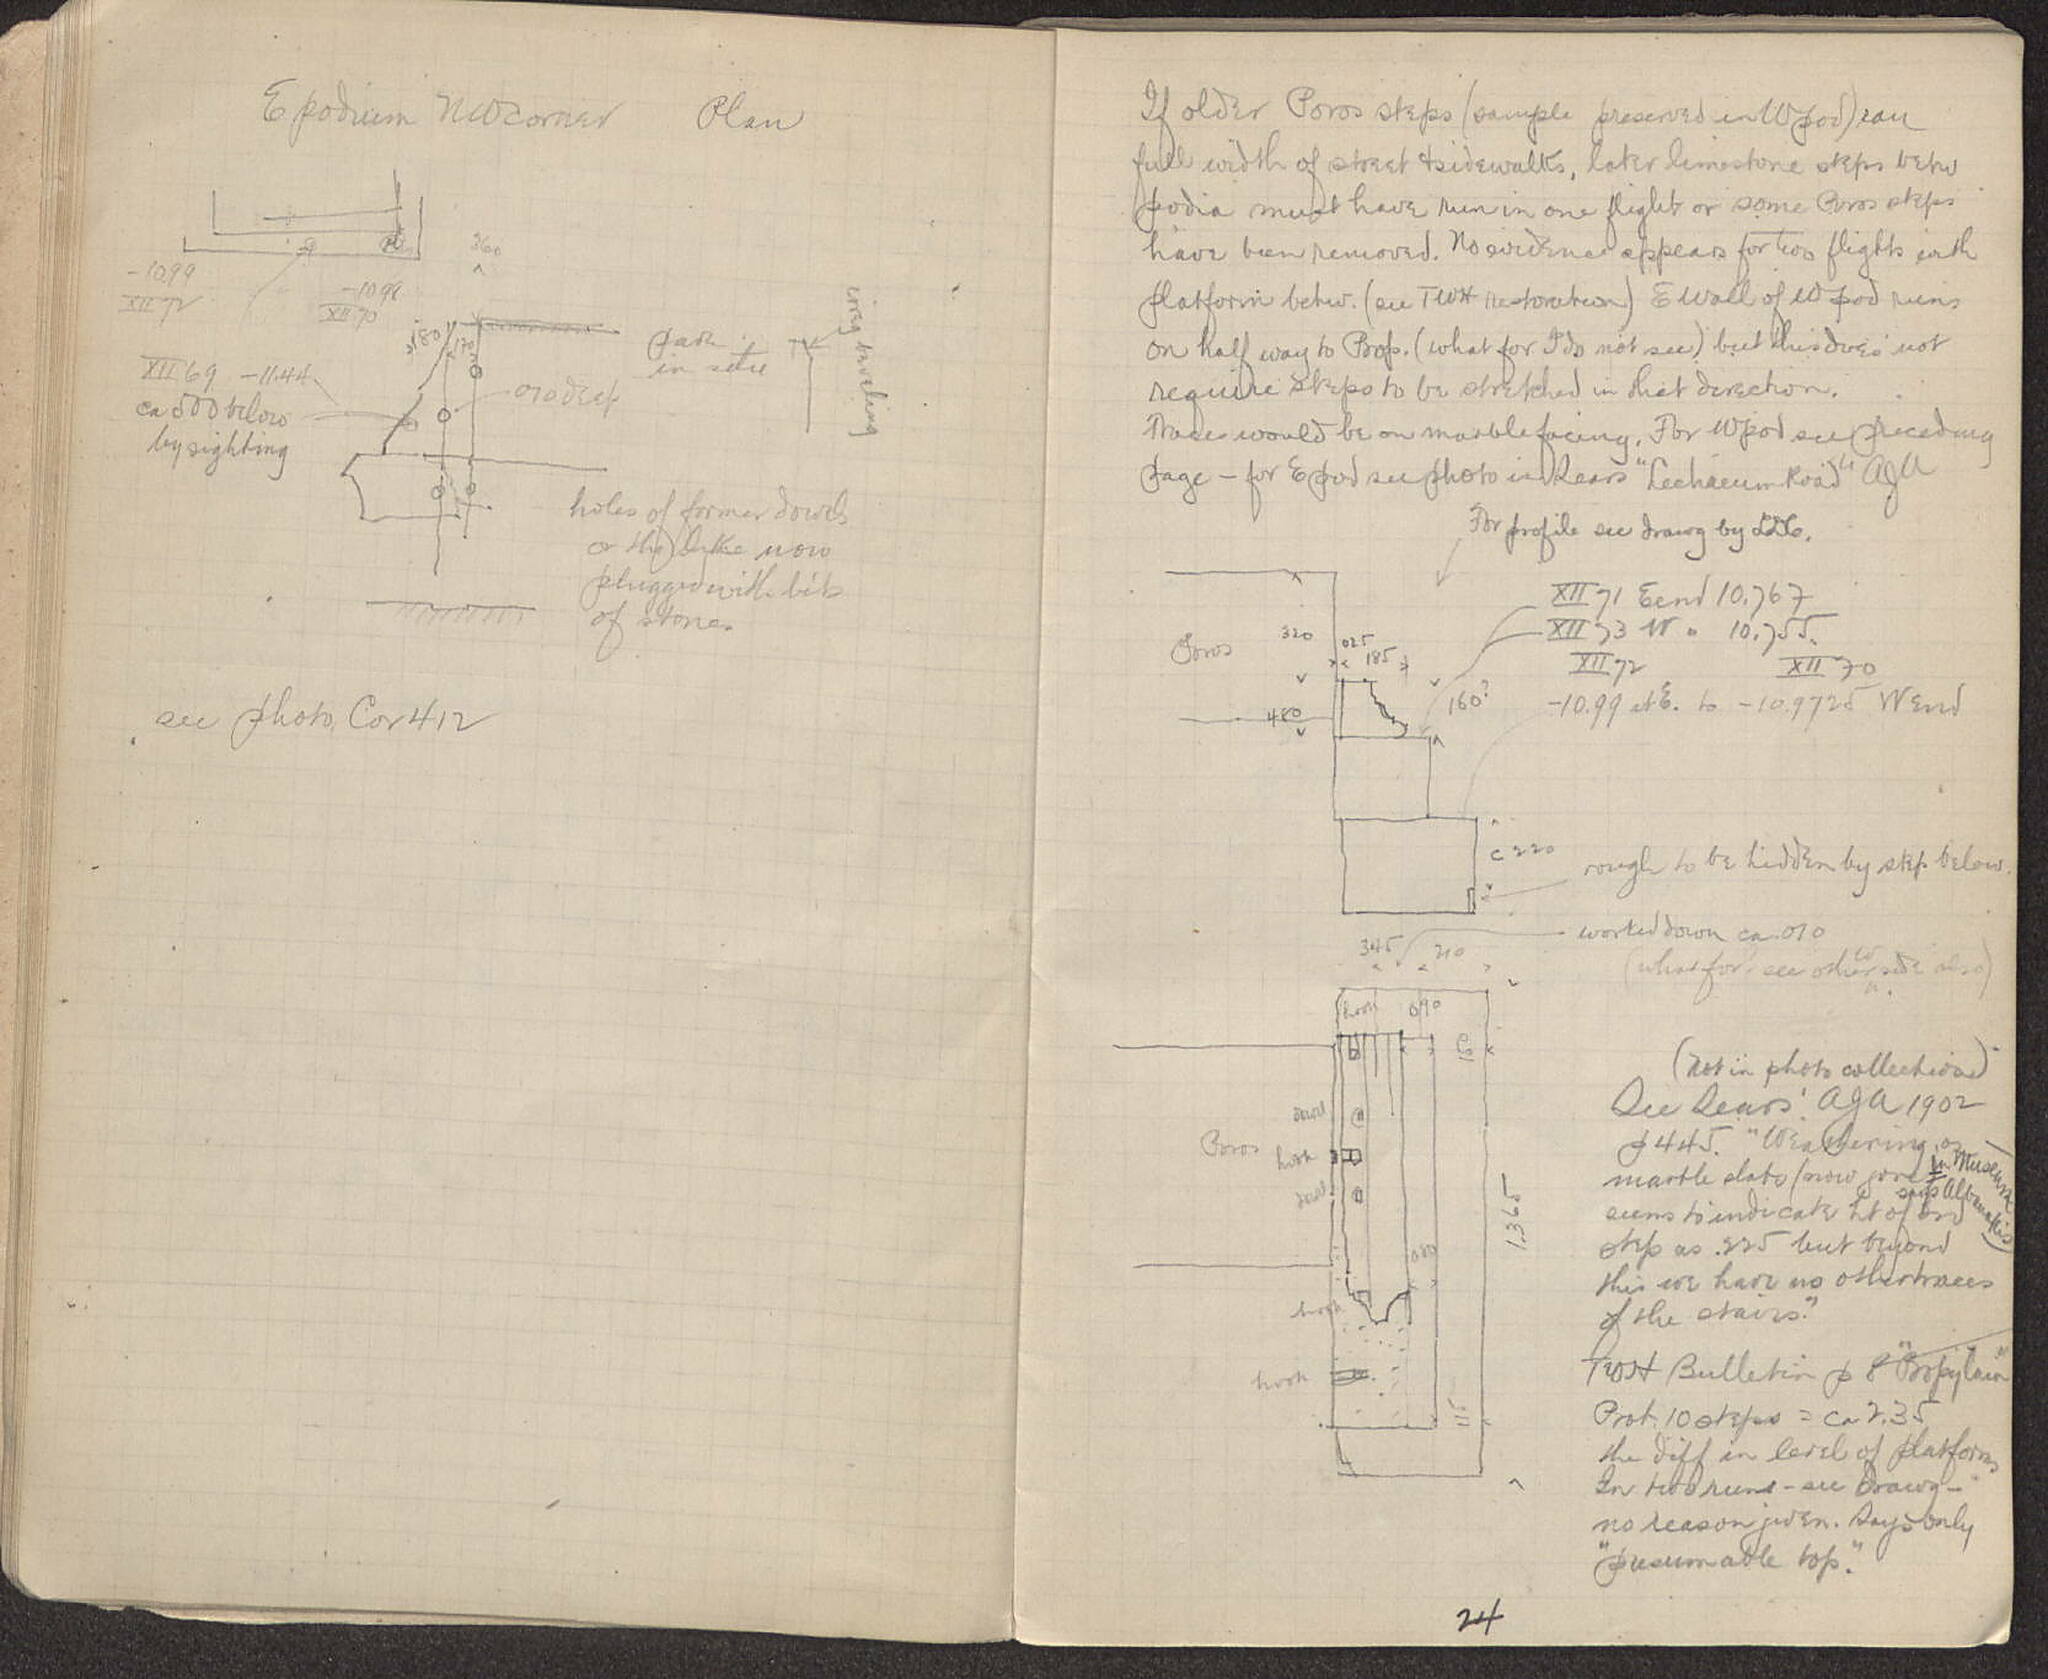 E podium NW corner Plan
360
-10.99
XII 72
-10.98
XII 70
180
170
XII 69 -11.44
ca 500 below
by sighting
010 deep
in situ
irreg beveling
holes of former dowels
or the like now
plugged with bits
of stone.
see photo, Cor 412
If older Poros steps (sample preserved in W pod) ran
full width of street & sidewalks, later limestone steps betw
podia must have run in one flight or some Poros steps
have been removed. No evidence appears for two flights with
platform betw. (see TWH restoration) E Wall of W pod runs
on half way to Prop. (what for I do not see) but this does not
require steps to be stretched in that direction.
Traces would be on marble facing. For W pod see preceding
page – for E pod see photo in Sears "Lechaeum Road" AJA
For profile see drawg by
XII 71 E end 10.767
XII 73 W " 10.755.
XII 72 XII 70
-10.99 at E. to -10.9725 W end
Poros
320
025
185
160?
480
c 220
rough to be hidden by step below.
worked down ca .010
(what for? see other side also)
345
210
hook
090
Poros
dowel
hook
dowel
080
1.365
hook
hook
115
(not in photo collection)
See Sears' AJA 1902
p 445. "Weathering on
marble slabs (now gone in Museum
says
seems to indicate ht of 3rd
step as .225 but beyond
this we have no other traces
of the stairs."
TWH Bulletin p 8 "Propylaea"
Prob. 10 steps = ca 2.35
the diff in level of platforms
In two runs – see drawg –
no reason given. Says only
"presumable top."
24